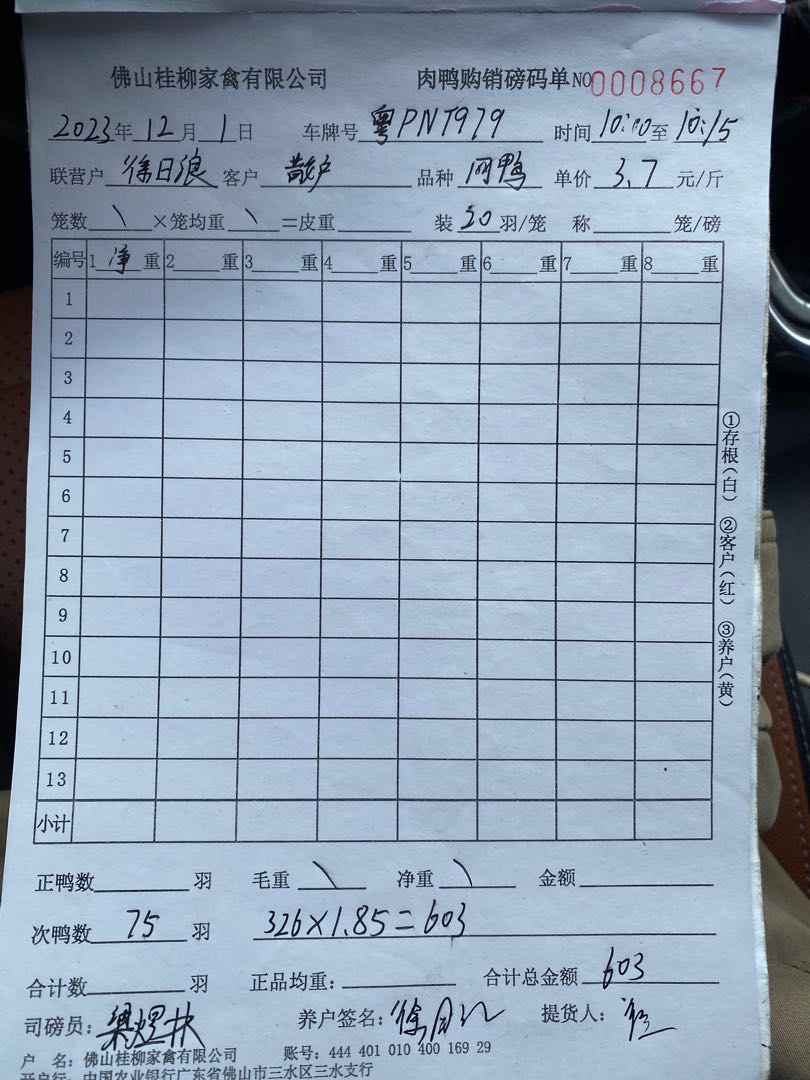 佛山桂柳家禽有限公司 肉鸭购销磅码单 NO 0008667
2023年 12月 1日 车牌号 粤PNT979 时间 10:00至 10:15
联营户 徐日浪 客户 散户 品种 网鸭 单价 3.7 元/斤
笼数 \ ×笼均重 \ =皮重 装 20 羽/笼 称 笼/磅
编号 1 净 重 2 重 3 重 4 重 5 重 6 重 7 重 8 重
1
2
3
4
5
6
7
8
9
10
11
12
13
小计
①存根(白) ②客户(红) ③养户(黄)
正鸭数 羽 毛重 \ 净重 \ 金额
次鸭数 75 羽 326×1.85=603
合计数 羽 正品均重: 合计总金额 603
司磅员: 梁煜林 养户签名: 徐 提货人:
户 名: 佛山桂柳家禽有限公司 账号: 444 401 010 400 169 29
开户行: 中国农业银行广东省佛山市三水区三水支行